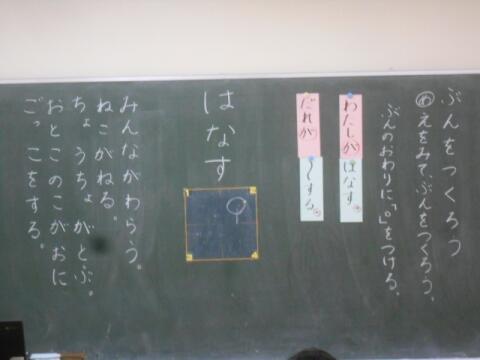 ぶんをつくろう
めえをみて、ぶんをつくろう。
ぶんのおわりに「。」をつける。
わたしがはなす。
だれが～する。
はなす
。
みんながわらう。
ねこがねる。
ちょうちょがとぶ。
おとこのこがおに
ごっこをする。